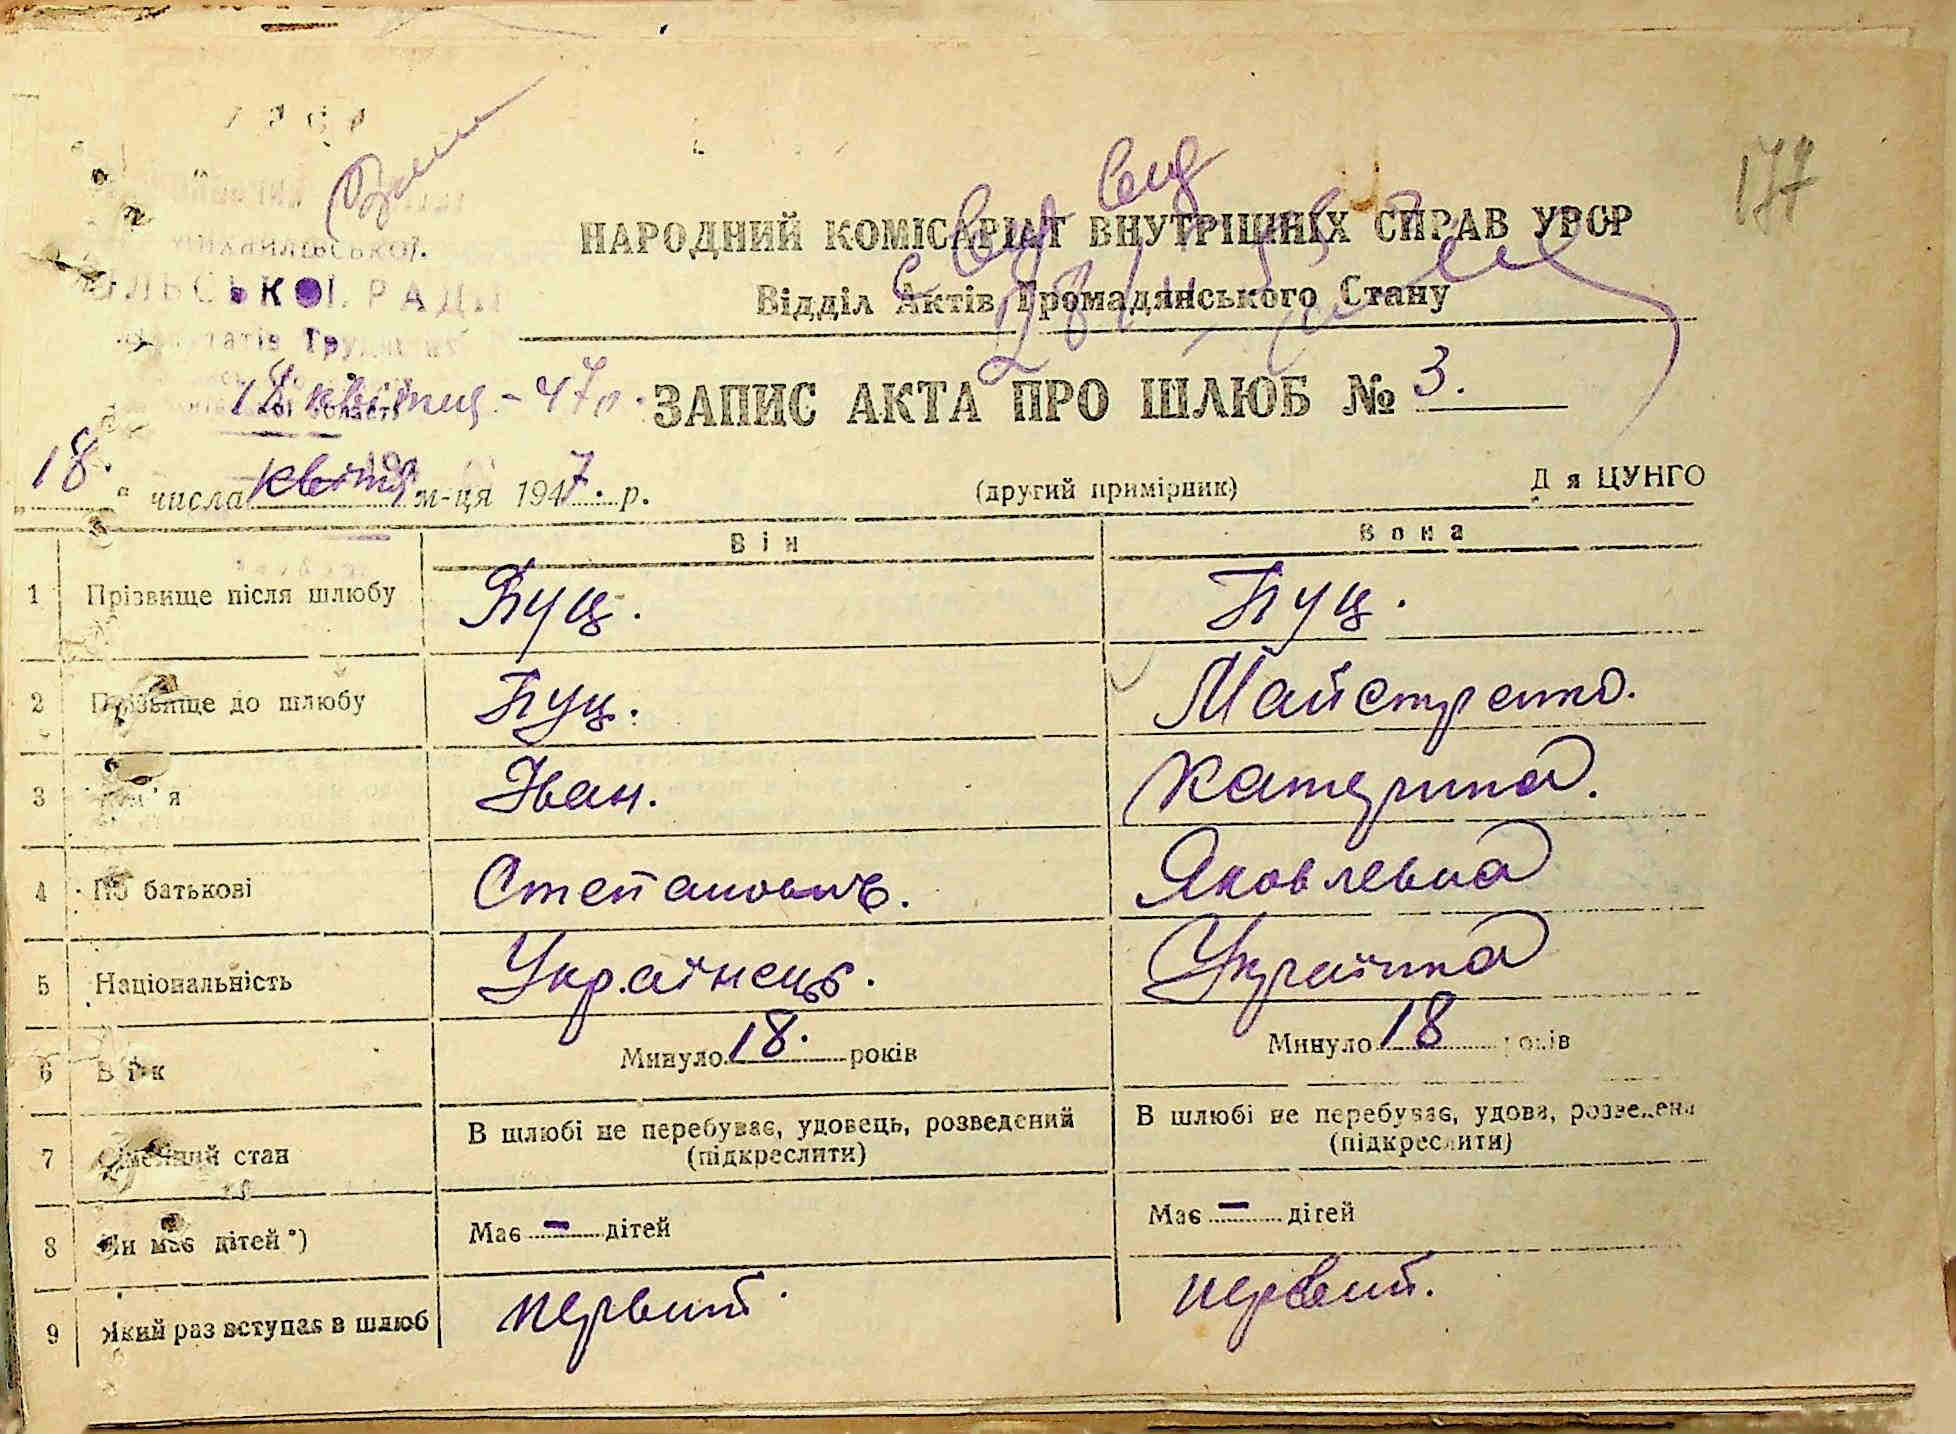 177
МИХАЙЛІВСЬКОЇ
СІЛЬСЬКОЇ РАДИ
НАРОДНИЙ КОМІСАРІАТ ВНУТРІШНІХ СПРАВ УРСР
Відділ Актів Громадянського Стану
18 квітня - 47 р.
ЗАПИС АКТА ПРО ШЛЮБ № 3.
18. числа квітня м-ця 1947. р.
(другий примірник)
Для ЦУНГО
Він Вона
1 Прізвище після шлюбу Буц. Буц.
2 Прізвище до шлюбу Буц. Майстренко.
3 Ім'я Іван. Катерина.
4 По батькові Степановичь. Яковлевна
5 Національність Українець. Українка
6 Вік Минуло 18. років Минуло 18 років
7 Сімейний стан В шлюбі не перебуває, удовець, розведений (підкреслити) В шлюбі не перебуває, удова, розведена (підкреслити)
8 Чи має дітей *) Має – дітей Має – дітей
9 Який раз вступає в шлюб первий. первий.